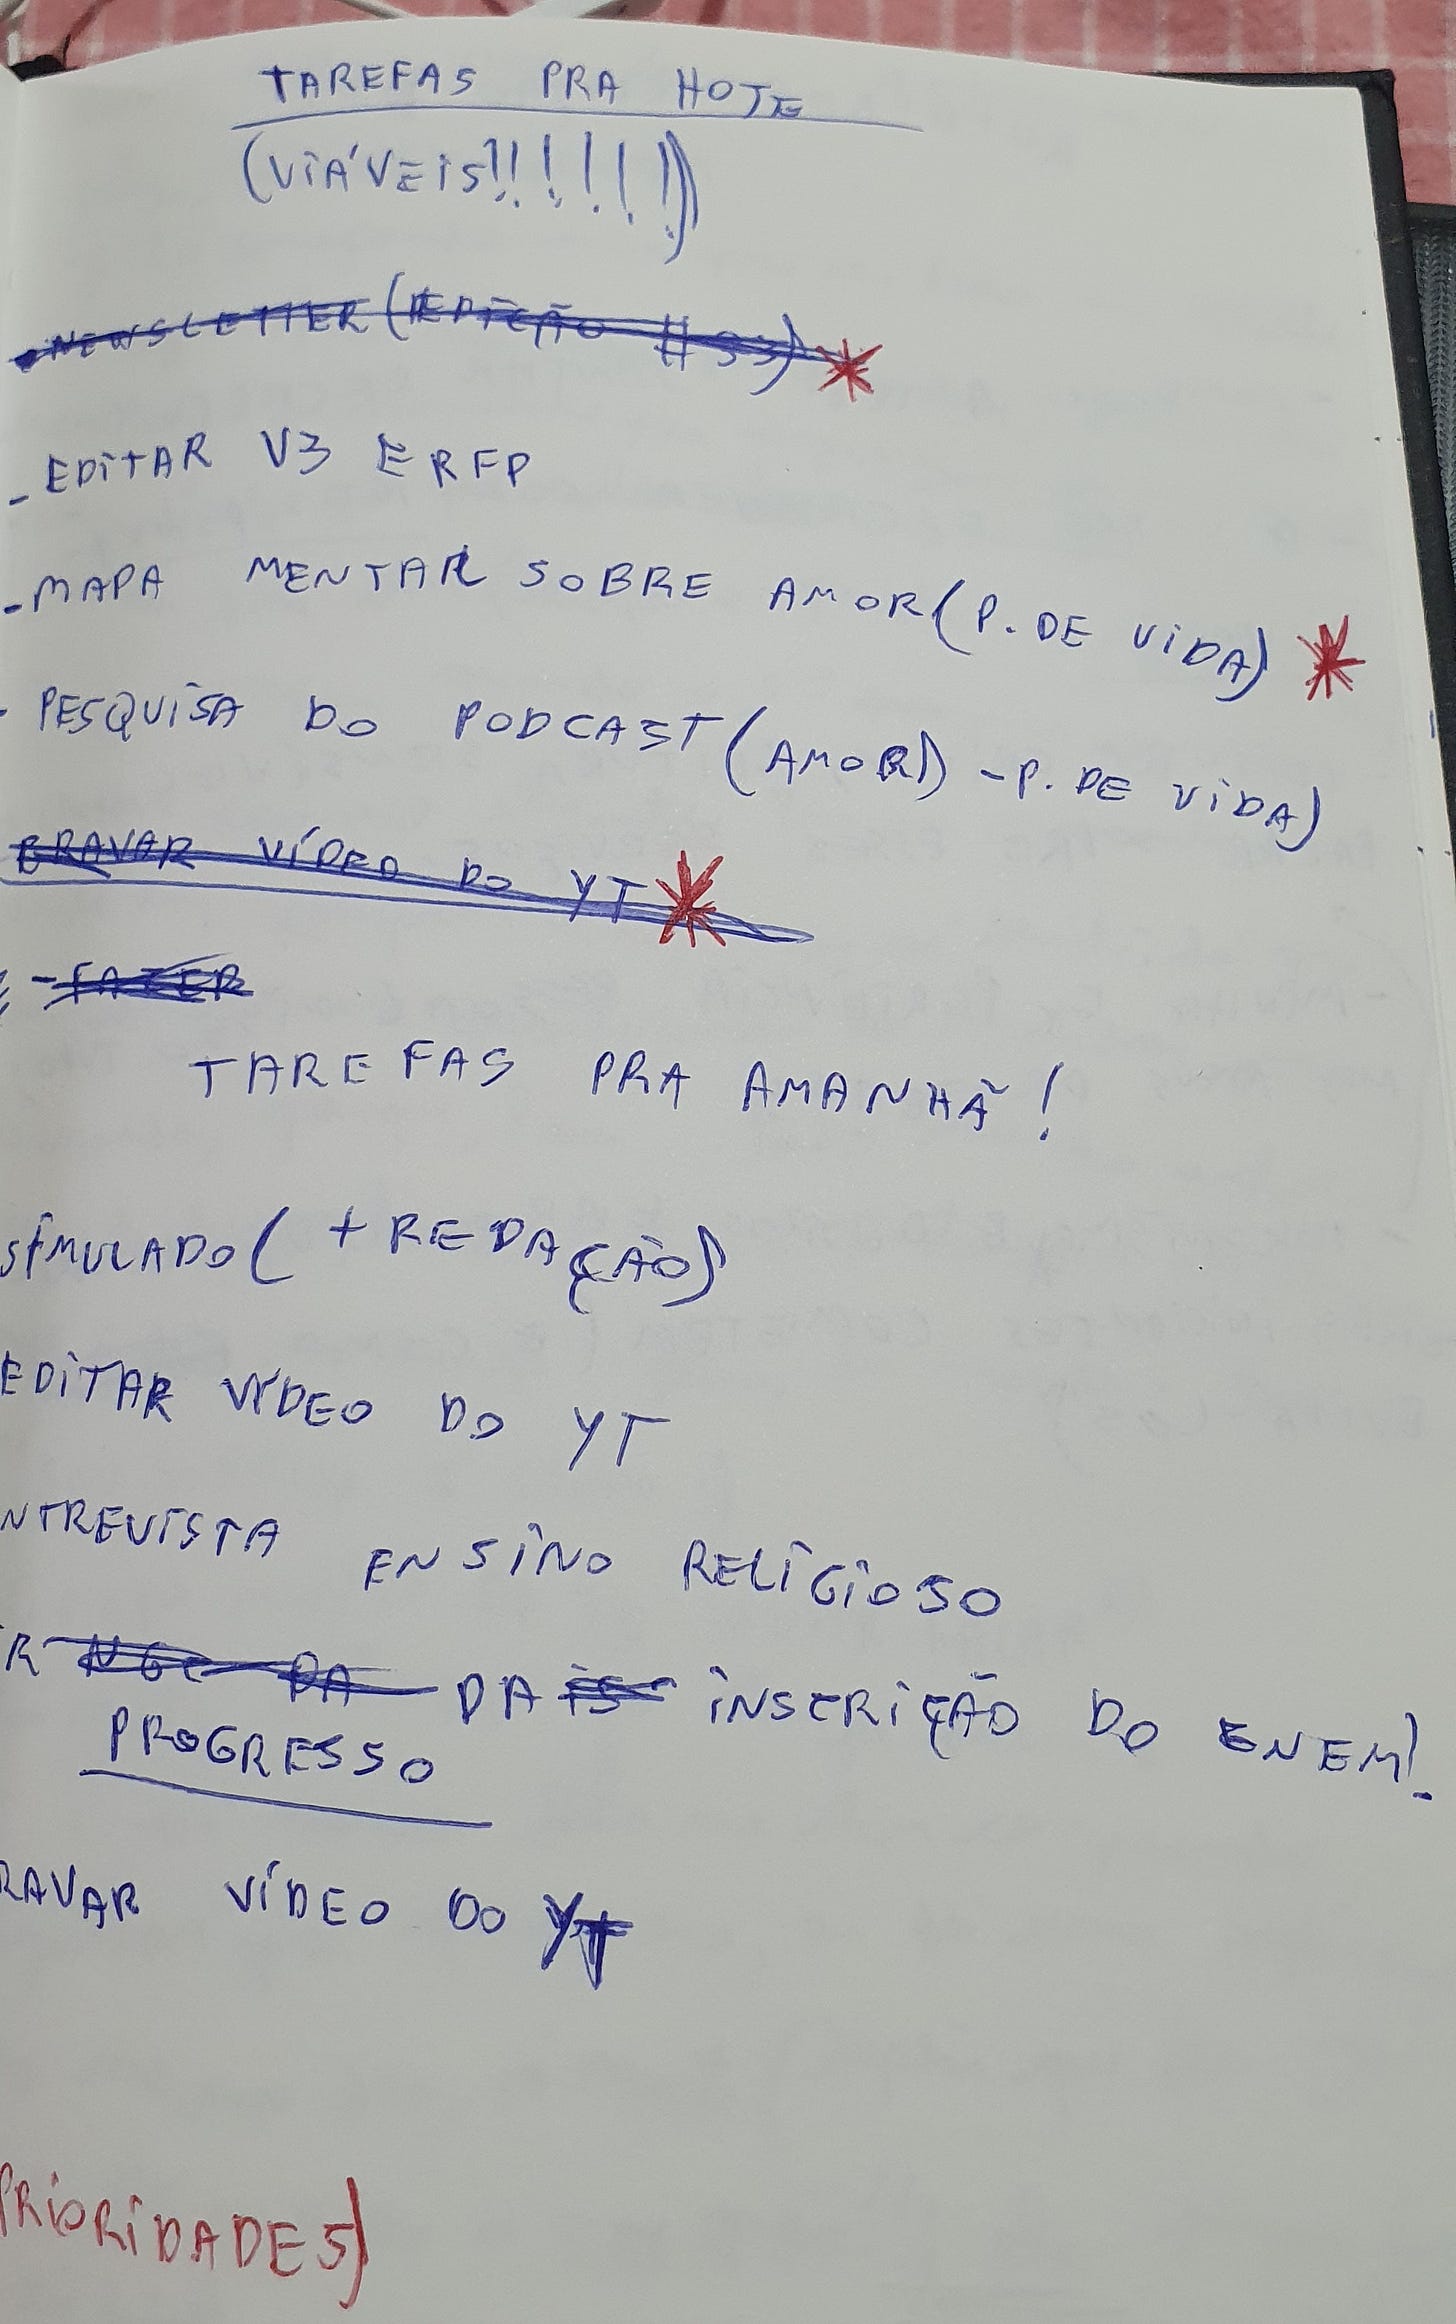 TAREFAS PRA HOJE
(VIÁVEIS!!!!!!)
NEWSLETTER (EDIÇÃO #33) *
- EDITAR V3 ERFP
- MAPA MENTAR SOBRE AMOR (P. DE VIDA) *
- PESQUISA DO PODCAST (AMOR) - P. DE VIDA)
GRAVAR VÍDEO DO YT *
- FAZER
TAREFAS PRA AMANHÃ!
SIMULADO ( + REDAÇÃO)
EDITAR VÍDEO DO YT
NTREVISTA ENSINO RELIGIOSO
R DA INSCRIÇÃO DO ENEM!
PROGRESSO
RAVAR VÍDEO DO YT
PRIORIDADES)